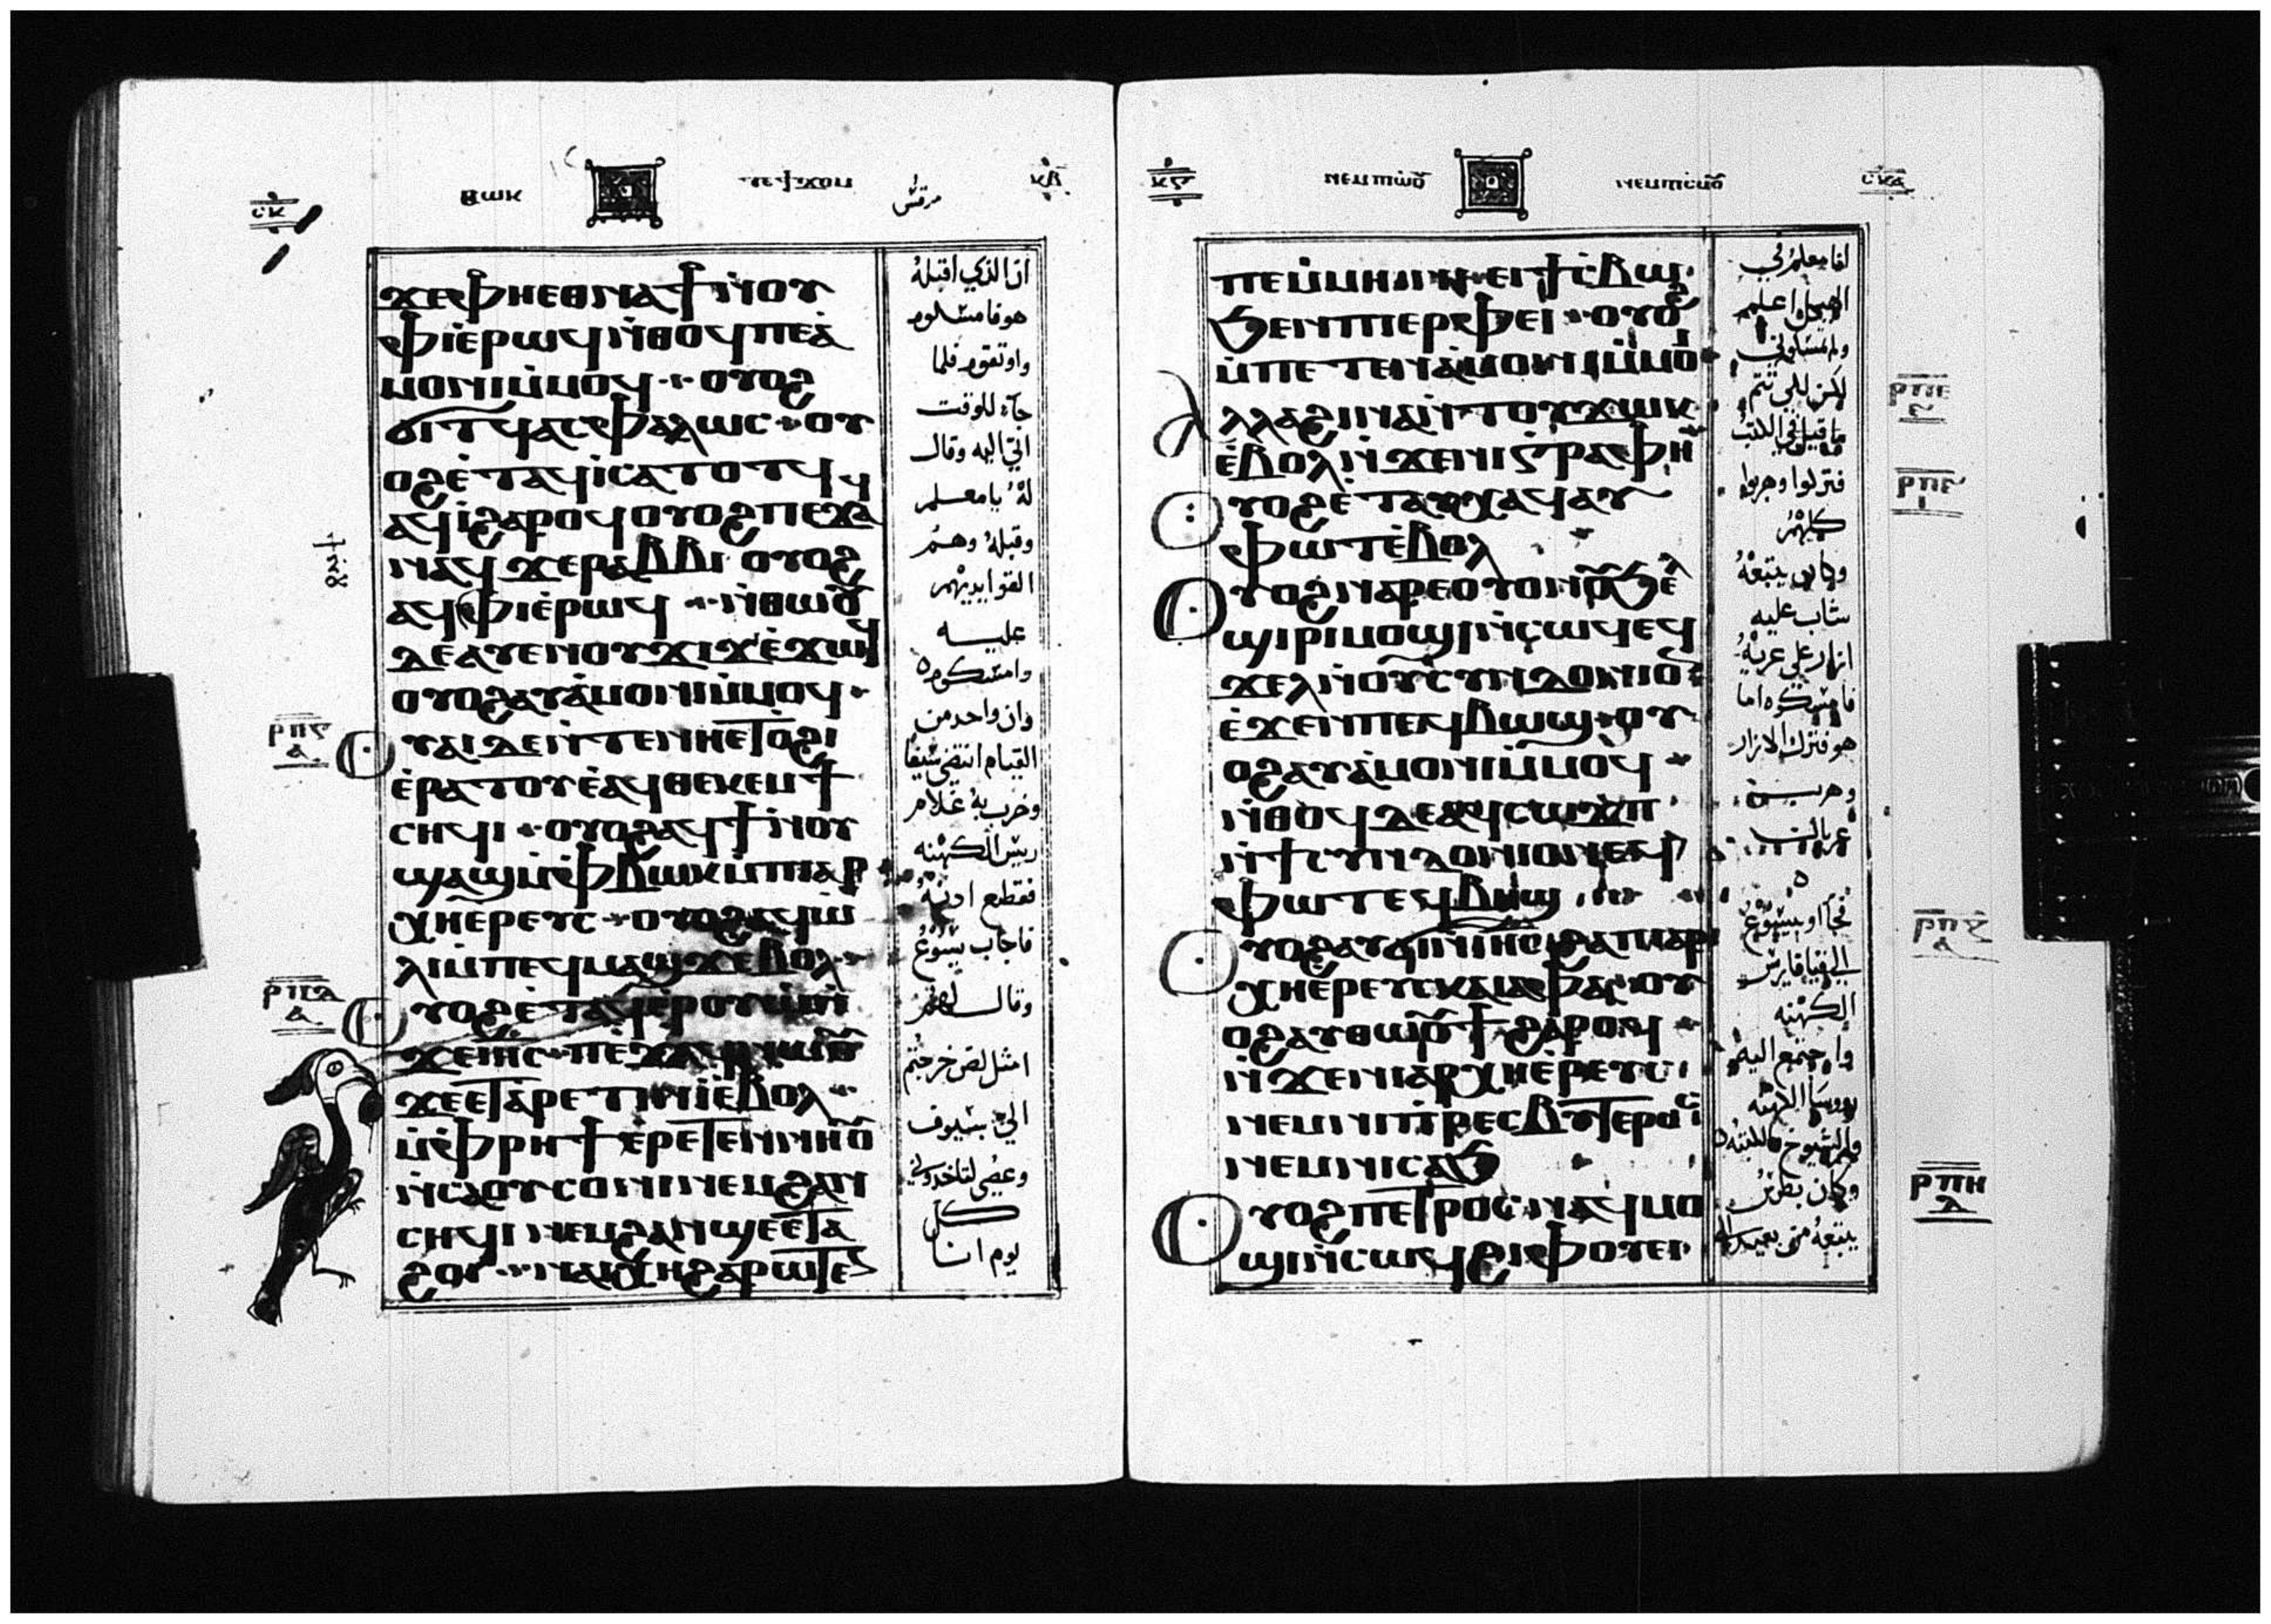 ⲥⲕ
مرقس
ⲕⲃ
ϫⲉⲫⲏⲉⲑⲛⲁϯⲛ̀ⲟⲩ
ⲫⲓⲉ̀ⲣⲱϥⲛ̀ⲑⲟϥⲡⲉⲁ̀
ⲙⲟⲛⲓⲙ̀ⲙⲟϥ ⲟⲩⲟϩ
ϭⲓⲧϥⲁⲥⲫⲁⲗⲱⲥ ⲟⲩ
ⲟϩⲉ̀ⲧⲁϥⲓ̀ⲥⲁⲧⲟⲧϥ
ⲁϥⲓ̀ϩⲁⲣⲟϥⲟⲩⲟϩⲡⲉϫⲁ
ⲛⲁϥϫⲉⲣⲁⲃⲃⲓ ⲟⲩⲟϩ
ⲁϥⲫⲓⲉ̀ⲣⲱϥ ⲛ̀ⲑⲱⲟⲩ
ⲇⲉⲁⲩⲉⲛⲟⲩϫⲓϫⲉ̀ϫⲱϥ
ⲟⲩⲟϩⲁⲩⲁ̀ⲙⲟⲛⲓⲙ̀ⲙⲟϥ
ⲟⲩⲁⲓⲇⲉⲛ̀ⲧⲉⲛⲏⲉⲧⲟ̀ϩⲓ
ⲉ̀ⲣⲁⲧⲟⲩⲉ̀ⲁϥⲑⲉⲕⲉⲙϯ
ⲥⲏϥⲓ ⲟⲩⲟϩⲁϥϯⲛ̀ⲟⲩ
ϣⲁϣⲙ̀ⲫⲃⲱⲕⲙ̀ⲡⲓⲁⲣ
ⲭⲏⲉ̀ⲣⲉⲩⲥ ⲟⲩⲟϩⲁϥⲱ̀
ⲗⲓⲙ̀ⲡⲉϥⲙⲁϣϫⲉ̀ⲃⲟⲗ
ⲟⲩⲟϩⲉ̀ⲧⲁϥⲉⲣⲟⲩⲱ̀ⲛ̀
ϫⲉⲓⲏⲥ ⲡⲉϫⲁϥⲛⲱⲟⲩ
ϫⲉⲉⲧⲁ̀ⲣⲉⲧⲛ̀ⲓ̀ⲉ̀ⲃⲟⲗ
ⲙ̀ⲫⲣⲏϯⲉ̀ⲣⲉⲧⲉⲛⲛⲏⲟⲩ
ⲛ̀ⲥⲁⲟⲩⲥⲟⲛⲓⲛⲉⲙϩⲁⲛ
ⲥⲏϥⲓⲛⲉⲙϩⲁⲛϣⲉⲉ̀ⲧⲁ
ϩⲟⲓ ⲛⲁⲓⲭⲏϩⲁⲣⲱⲧⲉⲛ
ان الذي اقبله
هو فامسكوه
واوتقوه فلما
جآء للوقت
اتى اليه وقال
له يا معلم
وقبله وهم
القوا ايديهم
عليه
وامسكوه
وان واحد من
القيام انتضى سيفا
وضرب به غلام
ريس الكهنه
فقطع ادنه
فاجاب يسوع
وقال لهم
امثل لص خرجتم
الي بسيوف
وعصي لتاخدوني
كل
يوم انا
ⲣⲡⲅ
ⲁ
ⲣⲡⲇ
ⲁ
ⲥⲕⲁ
ⲡⲉⲙ̀ⲙⲏⲓⲛⲓ ⲉⲓϯⲥ̀ⲃⲱ
ϧⲉⲛⲡⲓⲉⲣⲫⲉⲓ ⲟⲩⲟϩ
ⲙ̀ⲡⲉⲧⲉⲛⲁ̀ⲙⲟⲛⲓⲙ̀ⲙⲟⲓ
ⲁⲗⲗⲁϩⲓⲛⲁⲛ̀ⲧⲟⲩϫⲱⲕ
ⲉ̀ⲃⲟⲗⲛ̀ϫⲉⲛⲓⲅⲣⲁⲫⲏ
ⲟⲩⲟϩⲉ̀ⲧⲁⲩⲭⲁϥⲁⲩ
ⲫⲱⲧⲉ̀ⲃⲟⲗ
ⲟⲩⲟϩⲛⲁⲣⲉⲟⲩⲟⲛⲟⲩϧⲉⲗ
ϣⲓⲣⲓⲙⲟϣⲓⲛ̀ⲥⲱϥⲉϥ
ϫⲉⲗⲛ̀ⲟⲩⲥⲩⲛⲇⲟⲛⲓⲟⲛ
ⲉ̀ϫⲉⲛⲡⲉϥⲃⲱϣ ⲟⲩ
ⲟϩⲁⲩⲁ̀ⲙⲟⲛⲓⲙ̀ⲙⲟϥ
ⲛ̀ⲑⲟϥⲇⲉⲁϥⲥⲱϫⲡ
ⲛ̀ϯⲥⲩⲛⲇⲟⲛⲓⲟⲛⲁϥ
ⲫⲱⲧⲉϥⲃⲏϣ
ⲟⲩⲟϩⲁⲩⲓ̀ⲛⲓⲛ̀ⲓⲏⲥϩⲁⲡⲓⲁⲣ
ⲭⲏⲉ̀ⲣⲉⲩⲥⲕⲁⲓⲁ̀ⲫⲁ ⲟⲩ
ⲟϩⲁⲩⲑⲱⲟⲩϯϩⲁⲣⲟϥ
ⲛ̀ϫⲉⲛⲓⲁⲣⲭⲏⲉ̀ⲣⲉⲩⲥ
ⲛⲉⲙⲛⲓⲡ̀ⲣⲉⲥⲃⲩⲧⲉⲣⲟⲥ
ⲛⲉⲙⲛⲓⲥⲁϧ
ⲟⲩⲟϩⲡⲉⲧⲣⲟⲥⲛⲁϥⲙⲟ
ϣⲓⲛ̀ⲥⲱϥϩⲓⲫⲟⲩⲉⲓ
الهيكل اعلم
ولم تمسكوني
لكن لكي تتم
ما قيل في الكتب
فتركوا وهربوا
كلهم
وكان يتبعه
شاب عليه
ازار علي عريه
فامسكوه اما
هو فترك الازار
وهرب
عريان
فجآاو بيسوع
الي قيافا ريس
الكهنه
واجتمع اليه
روسا الكهنه
والشيوخ والكتبه
وكان بطرس
يتبعه من بعيد
ⲣⲡⲉ
ⲣⲡⲏ
ⲇ